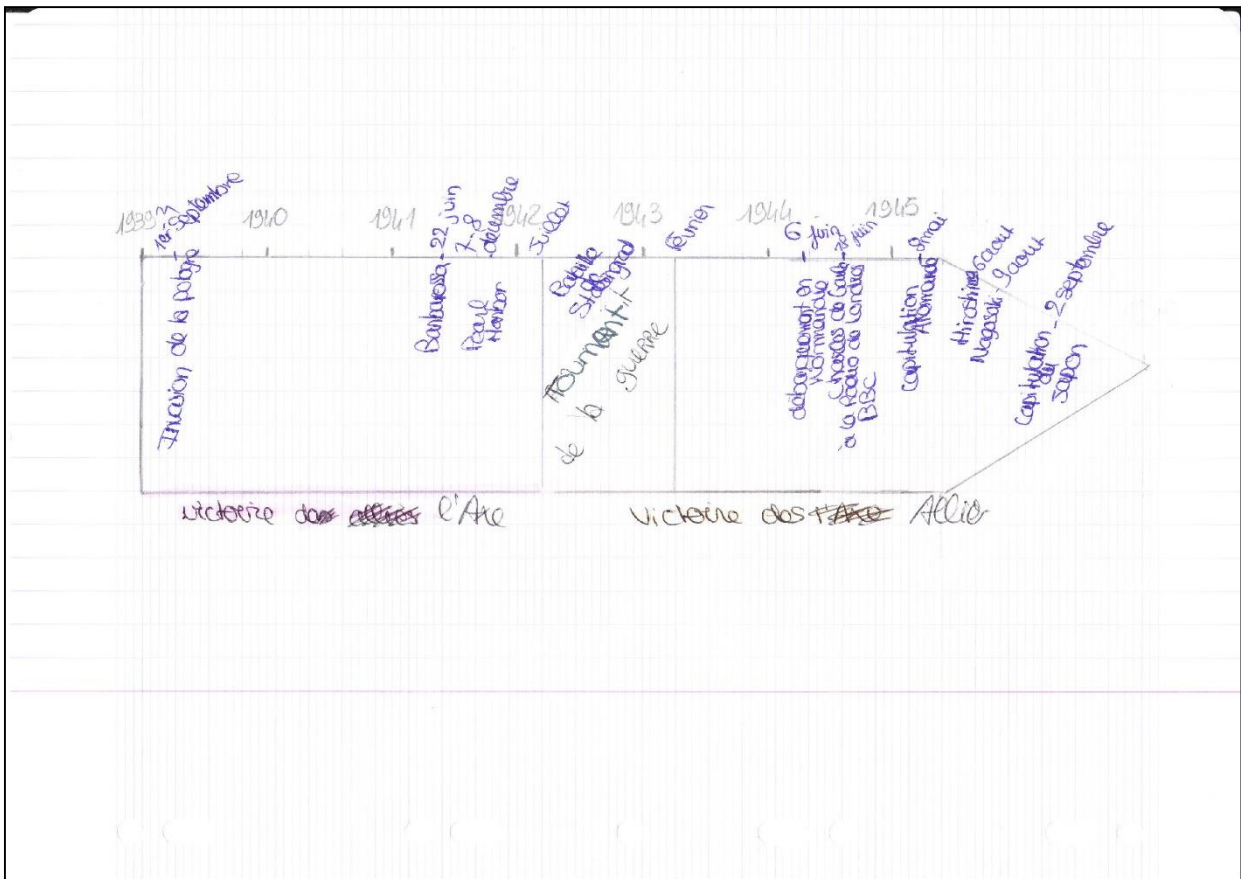 1939
1940
1941
1942
1943
1944
1945
septembre
Invasion de la pologne
Barbarossa - 22 juin
7-8
décembre
Pearl
Harbor
Juillet
Bataille
de
Stalingrad
Tournant
de la
guerre
Février
6
Juin
débarquement en
Normandie
Charles de
juin
à la Radio de Londres
BBC
Capitulation
Allemande
mai
Hiroshima 6 aout
Nagasaki - 9 aout
Capitulation - 2 septembre
du
Japon
victoire de l'Axe
victoire des Allié